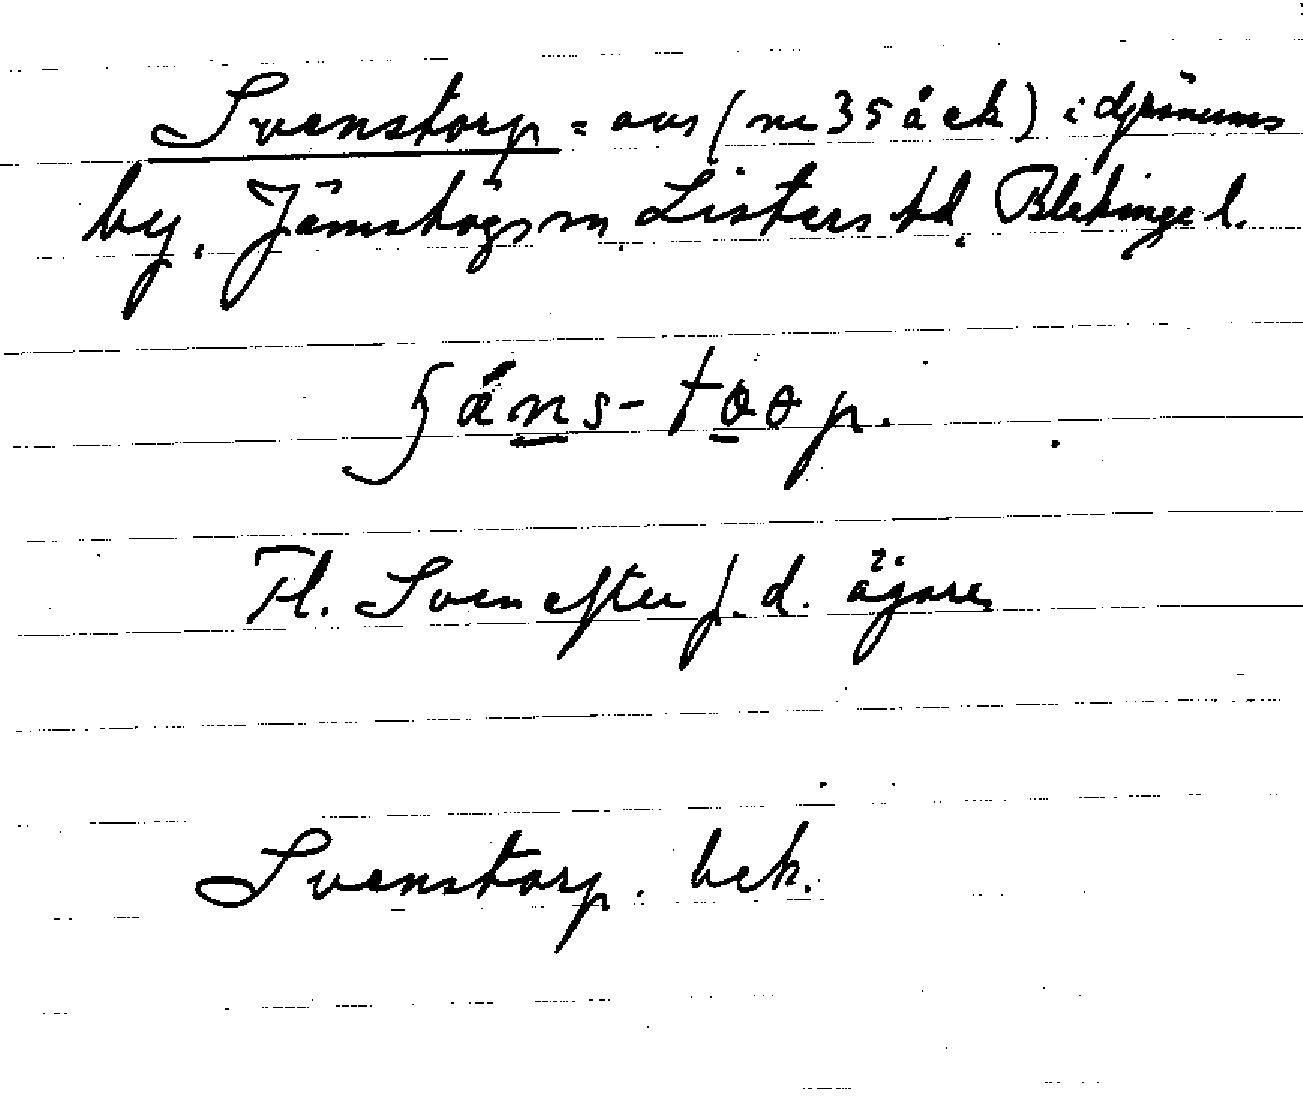 Svenstorp = avs (nr 35 å ek) i
by, Jämshögs sn, Listers hd, Blekinge l.
Säns-toop.
Fl. Sven efter f. d. ägare
Svenstorp. bek.